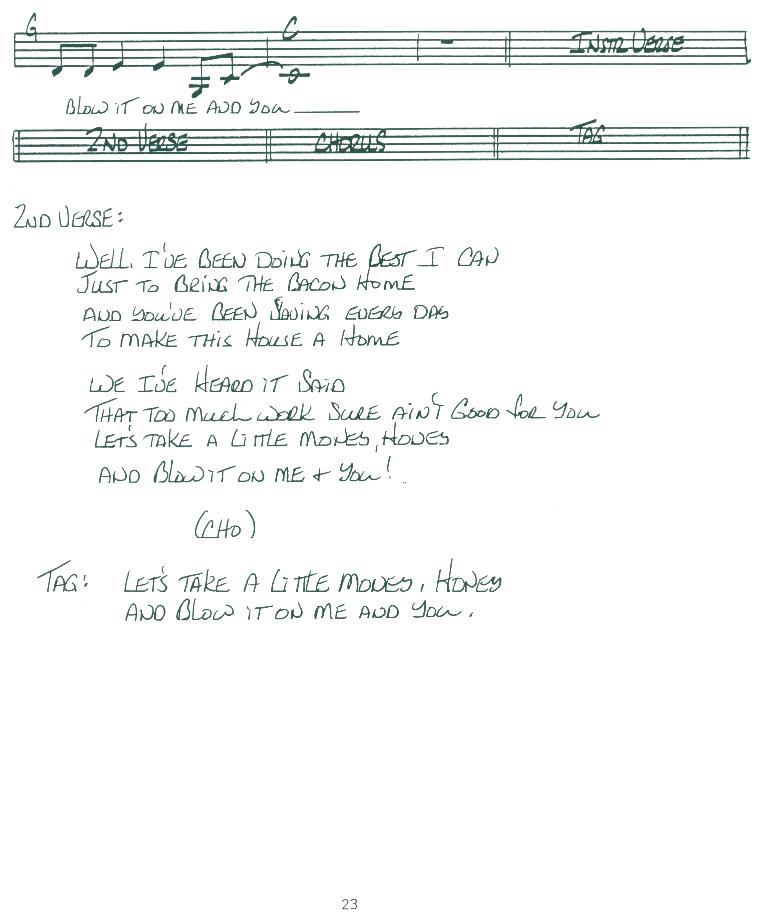 G C
INSTR VERSE
BLOW IT ON ME AND YOU
2ND VERSE CHORUS TAG
2ND VERSE:
WELL, I'VE BEEN DOING THE BEST I CAN
JUST TO BRING THE BACON HOME
AND YOU'VE BEEN SAVING EVERY DAY
TO MAKE THIS HOUSE A HOME
WE I'VE HEARD IT SAID
THAT TOO MUCH WORK SURE AIN'T GOOD FOR YOU
LET'S TAKE A LITTLE MONEY, HONEY
AND BLOW IT ON ME + YOU!
(CHO)
TAG: LET'S TAKE A LITTLE MONEY, HONEY
AND BLOW IT ON ME AND YOU.
23